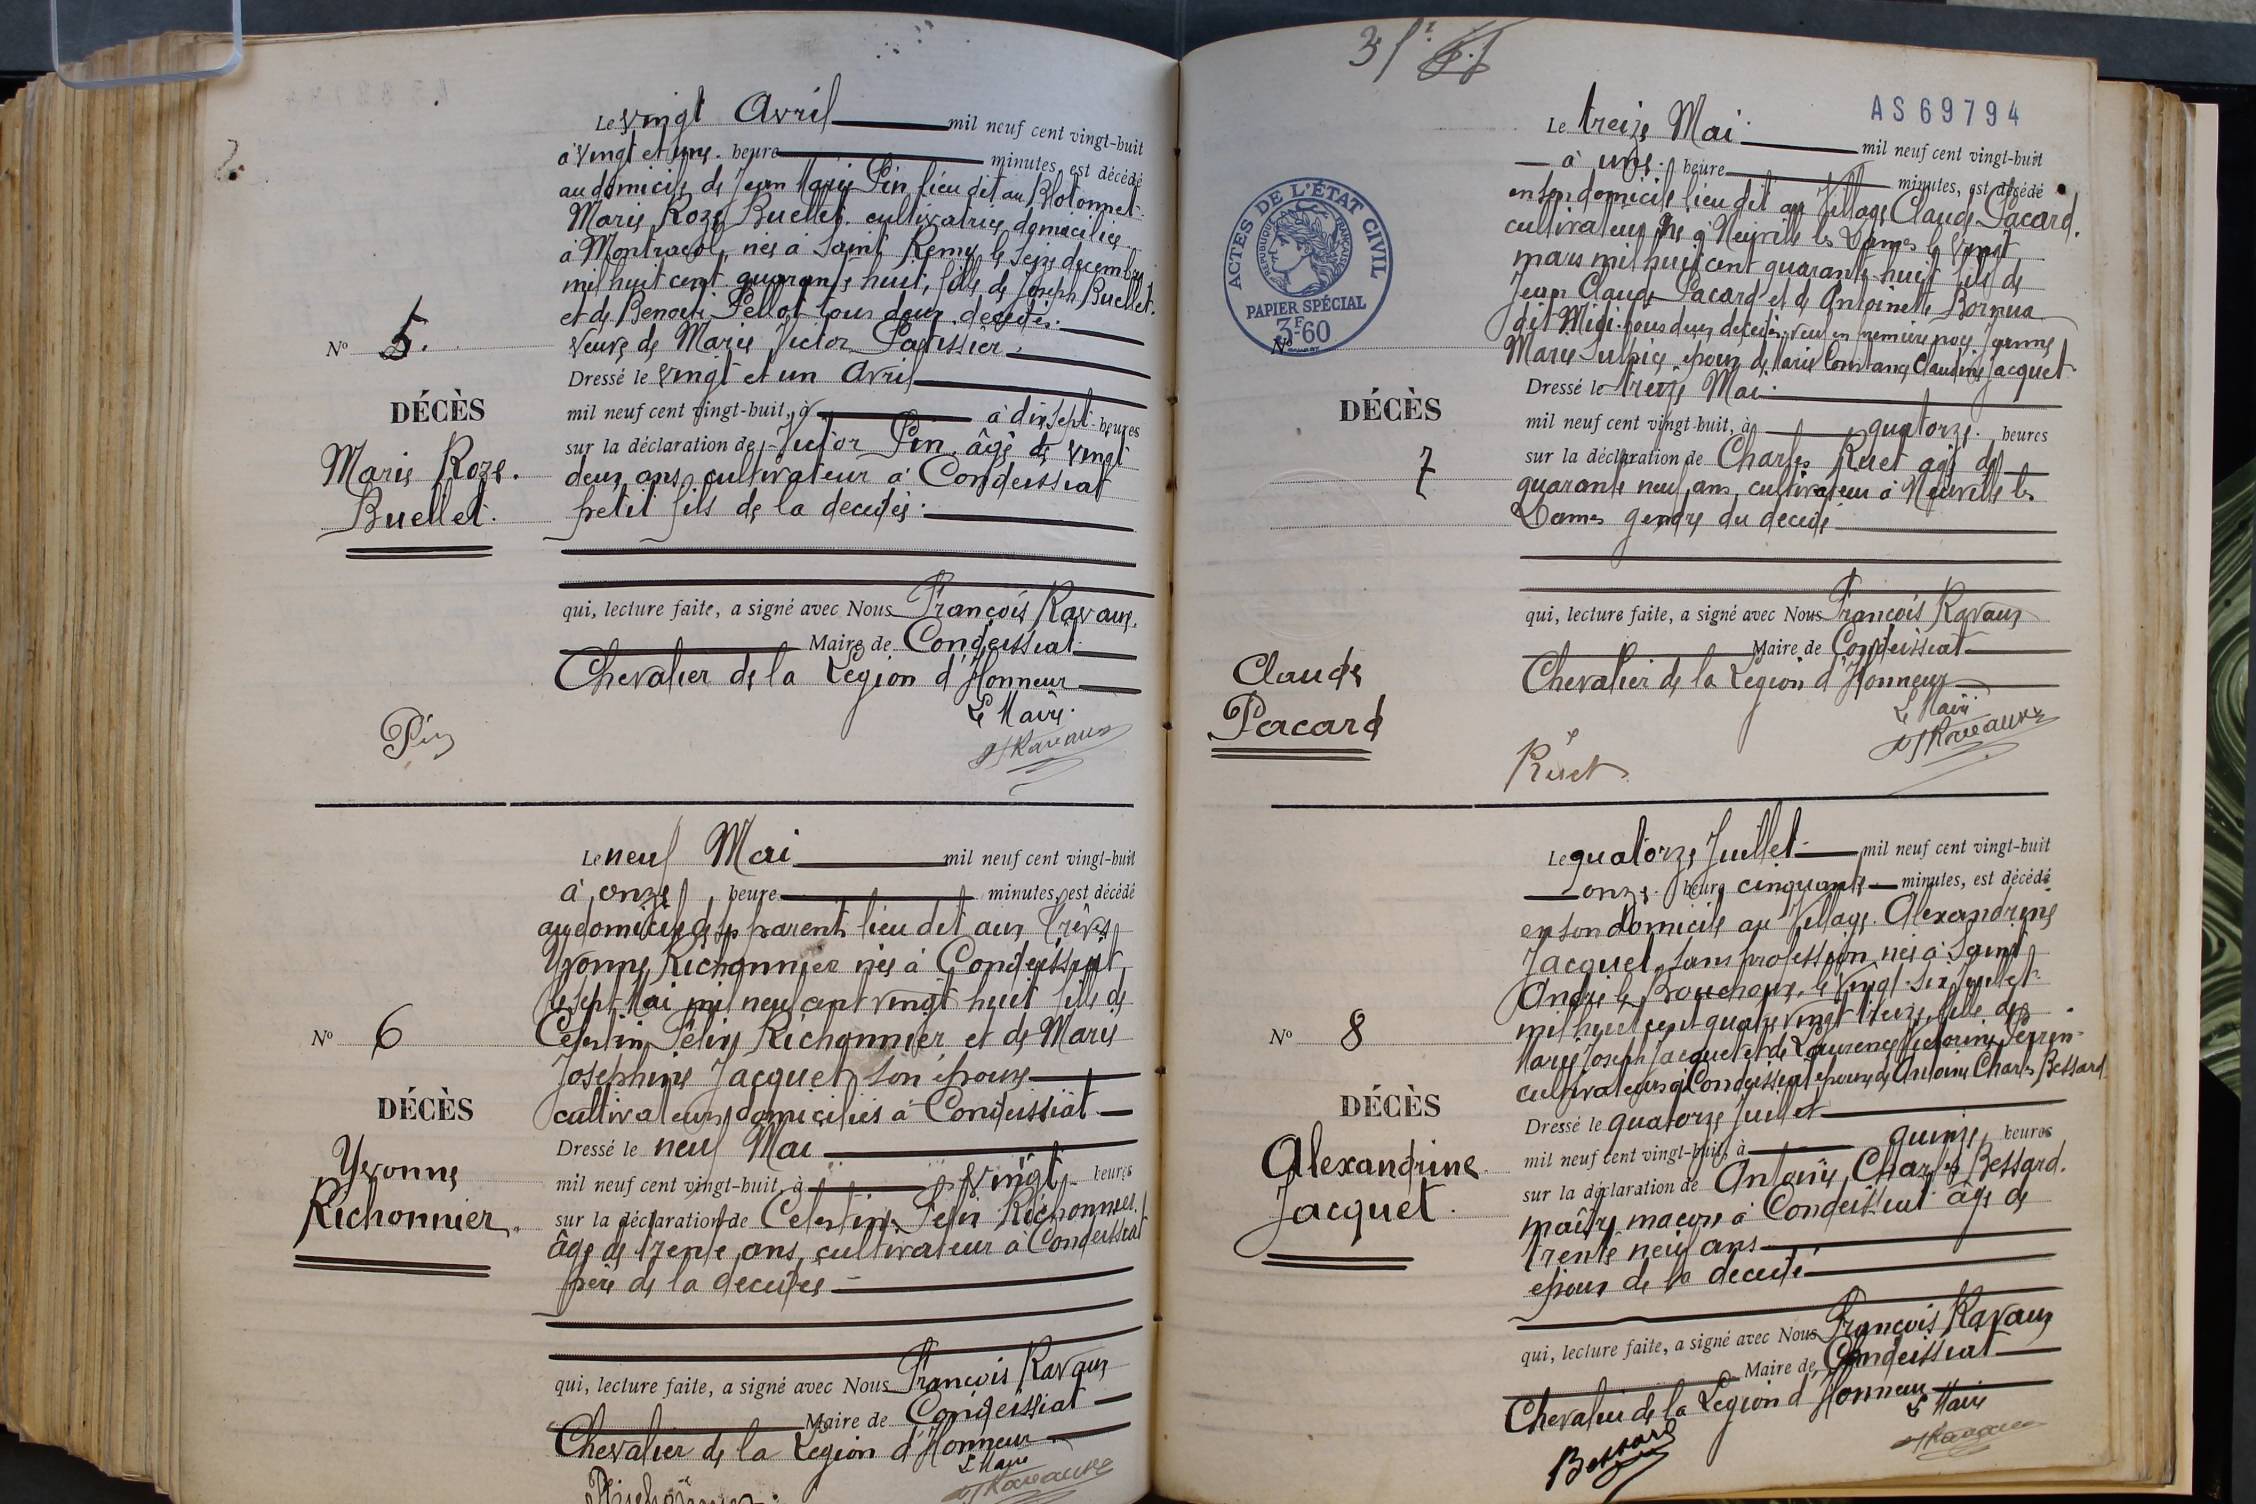 Le vingt Avril mil neuf cent vingt-huit
à vingt et une heure minutes, est décédé
au domicile de Jean Marie Pin lieu dit au Blotonnet
Marie Roze Buellet cultivatrice domiciliée
à Montracol, née à Saint Remy le seize decembre
mil huit cent quarante huit, fille de Joseph Buellet
et de Benoite Pellot tous deux décédés.
Veuve de Marie Victor Patissier.
Nº 5.
DÉCÈS
Marie Roze.
Buellet.
Dressé le vingt et un Avril
mil neuf cent vingt-huit, à à dix sept heures
sur la déclaration de Victor Pin âgé de vingt
deux ans cultivateur à Condeissiat
petit fils de la decedée.
qui, lecture faite, a signé avec Nous François Ravaux.
Maire de Condeissiat.
Chevalier de la Légion d'Honneur
Le Maire.
Pin
Ravaux
Le neuf Mai mil neuf cent vingt-huit
à onze heure minutes, est décédé
au domicile de ses parents lieu dit aux
Yvonne Richonnier née à Condeissiat
le sept Mai mil neuf cent vingt huit fille de
Nº 6
Celestin Félix Richonnier et de Marie
Josephine Jacquet son épouse
cultivateurs domiciliés à Condeissiat
DÉCÈS
Yvonne
Richonnier.
Dressé le neuf Mai
mil neuf cent vingt-huit, à vingt heures
sur la déclaration de Celestin Felix Richonnier.
âgé de trente ans, cultivateur à Condeissiat
père de la decedée
qui, lecture faite, a signé avec Nous François Ravaux
Maire de Condeissiat
Chevalier de la Légion d'Honneur
Le Maire
Ravaux
Richonnier
AS69794
ACTES DE L'ÉTAT CIVIL
RÉPUBLIQUE FRANÇAISE
PAPIER SPÉCIAL
3F.60
Le treize Mai mil neuf cent vingt-huit
à une heure minutes, est décédé
en son domicile lieu dit au Village Claude Pacard.
cultivateur Né à Neuville les Dames le vingt
mars mil huit cent quarante huit fils de
Jean Claude Pacard et de Antoinette
dit Midi tous deux décédés, veuf en premiere noce Jeanne
Marie Sulpice époux de Marie Constance Claudine Jacquet
Nº
DÉCÈS
7
Claude
Pacard
Dressé le treize Mai
mil neuf cent vingt-huit, à quatorze heures
sur la déclaration de Charles Ruet âgé de
quarante neuf ans, cultivateur à Neuville les
Dames gendre du decedé
qui, lecture faite, a signé avec Nous François Ravaux
Maire de Condeissiat
Chevalier de la Legion d'Honneur
Le Maire
Ravaux
Ruet
Le quatorze Juillet mil neuf cent vingt-huit
onze heure cinquante minutes, est décédé
en son domicile au Village Alexandrine
Jacquet sans profession née à Saint
André le Bouchoux, le vingt six Juillet
mil huit cent quatre vingt treize fille de
Nº 8
Marie Joseph Jacquet et de Laurence Victorine Perrin
cultivateurs à Condeissiat épouse de Antoine Charles Bessard
DÉCÈS
Alexandrine
Jacquet.
Dressé le quatorze Juillet
mil neuf cent vingt-huit, à quinze heures
sur la déclaration de Antoine Charles Bessard.
maître maçon à Condeissiat âgé de
trente neuf ans
époux de la decedé
qui, lecture faite, a signé avec Nous François Ravaux
Maire de Condeissiat
Chevalier de la Legion d'Honneur
Le Maire
Bessard
Ravaux